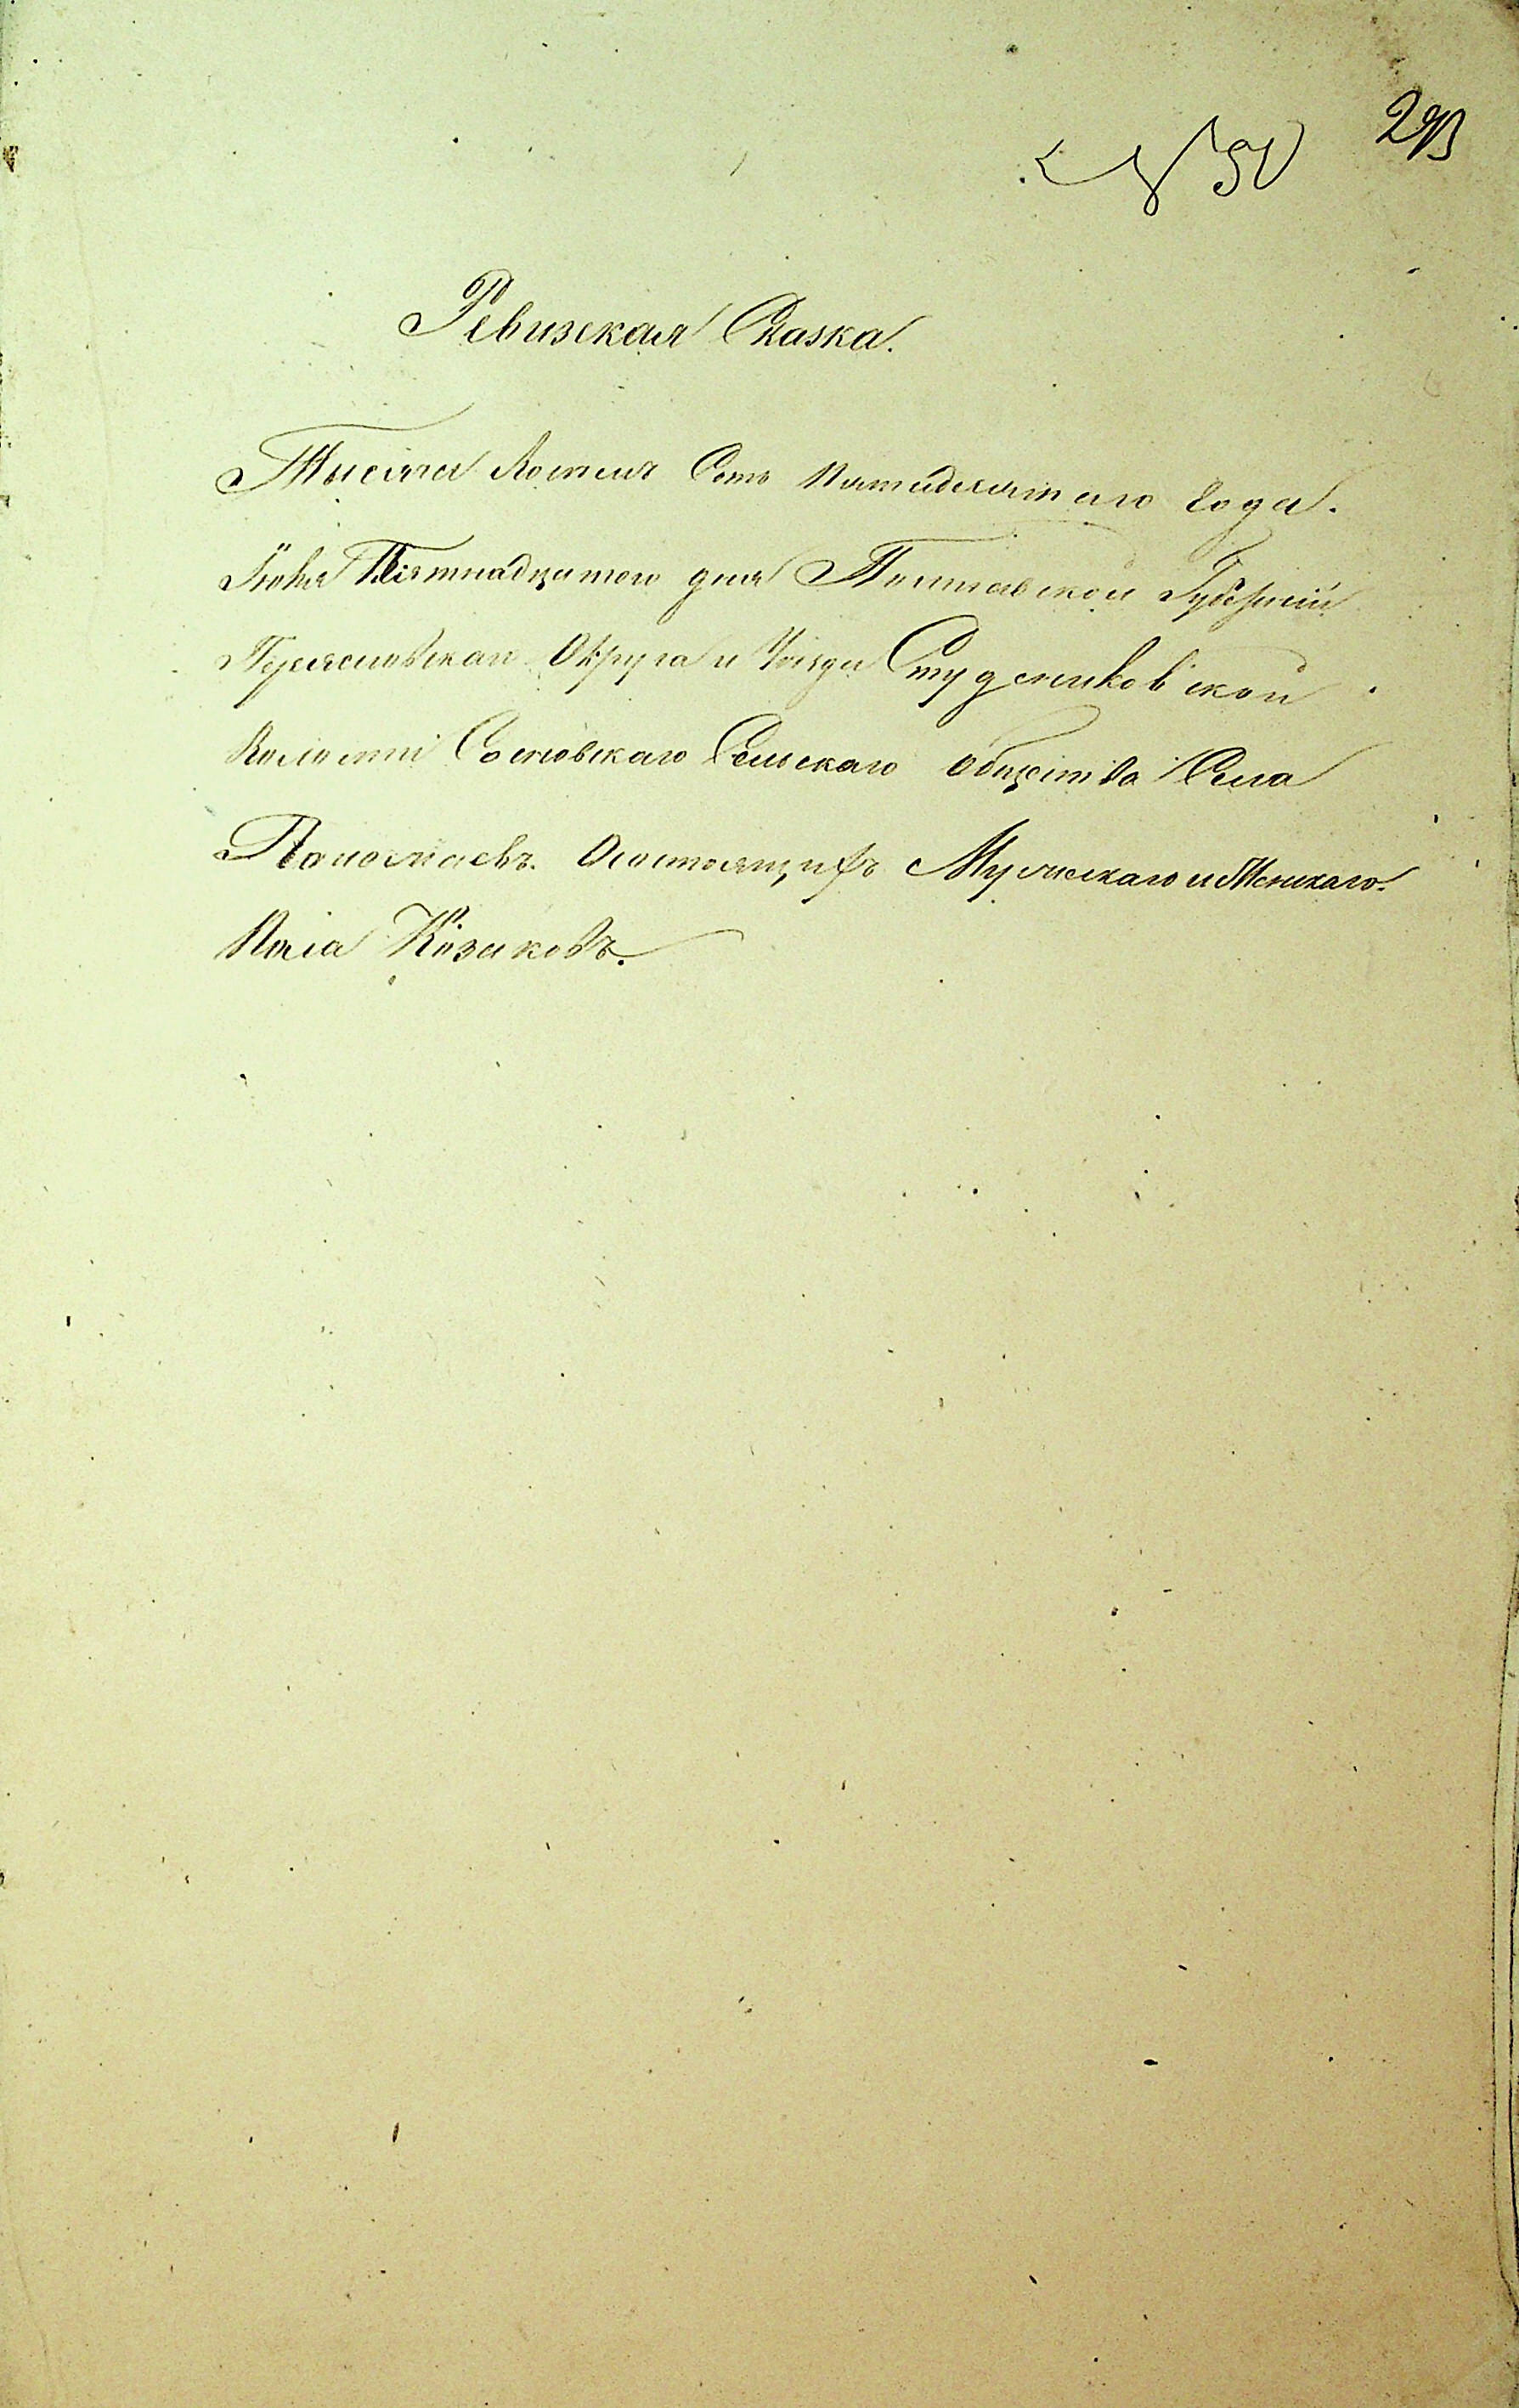 293
№ 50
Ревизская Сказка.
Тысяча Восемь Сотъ Пятидесятаго Года.
Іюня Пятнадцатого дня Полтавской Губерніи
Переяславскаго Округа и Уѣзда Студениковской
Волости Сосновскаго Сельскаго Общества Села
Помоклаевъ. О состоящихъ Мужескаго и Женскаго
Пола Козаковъ.